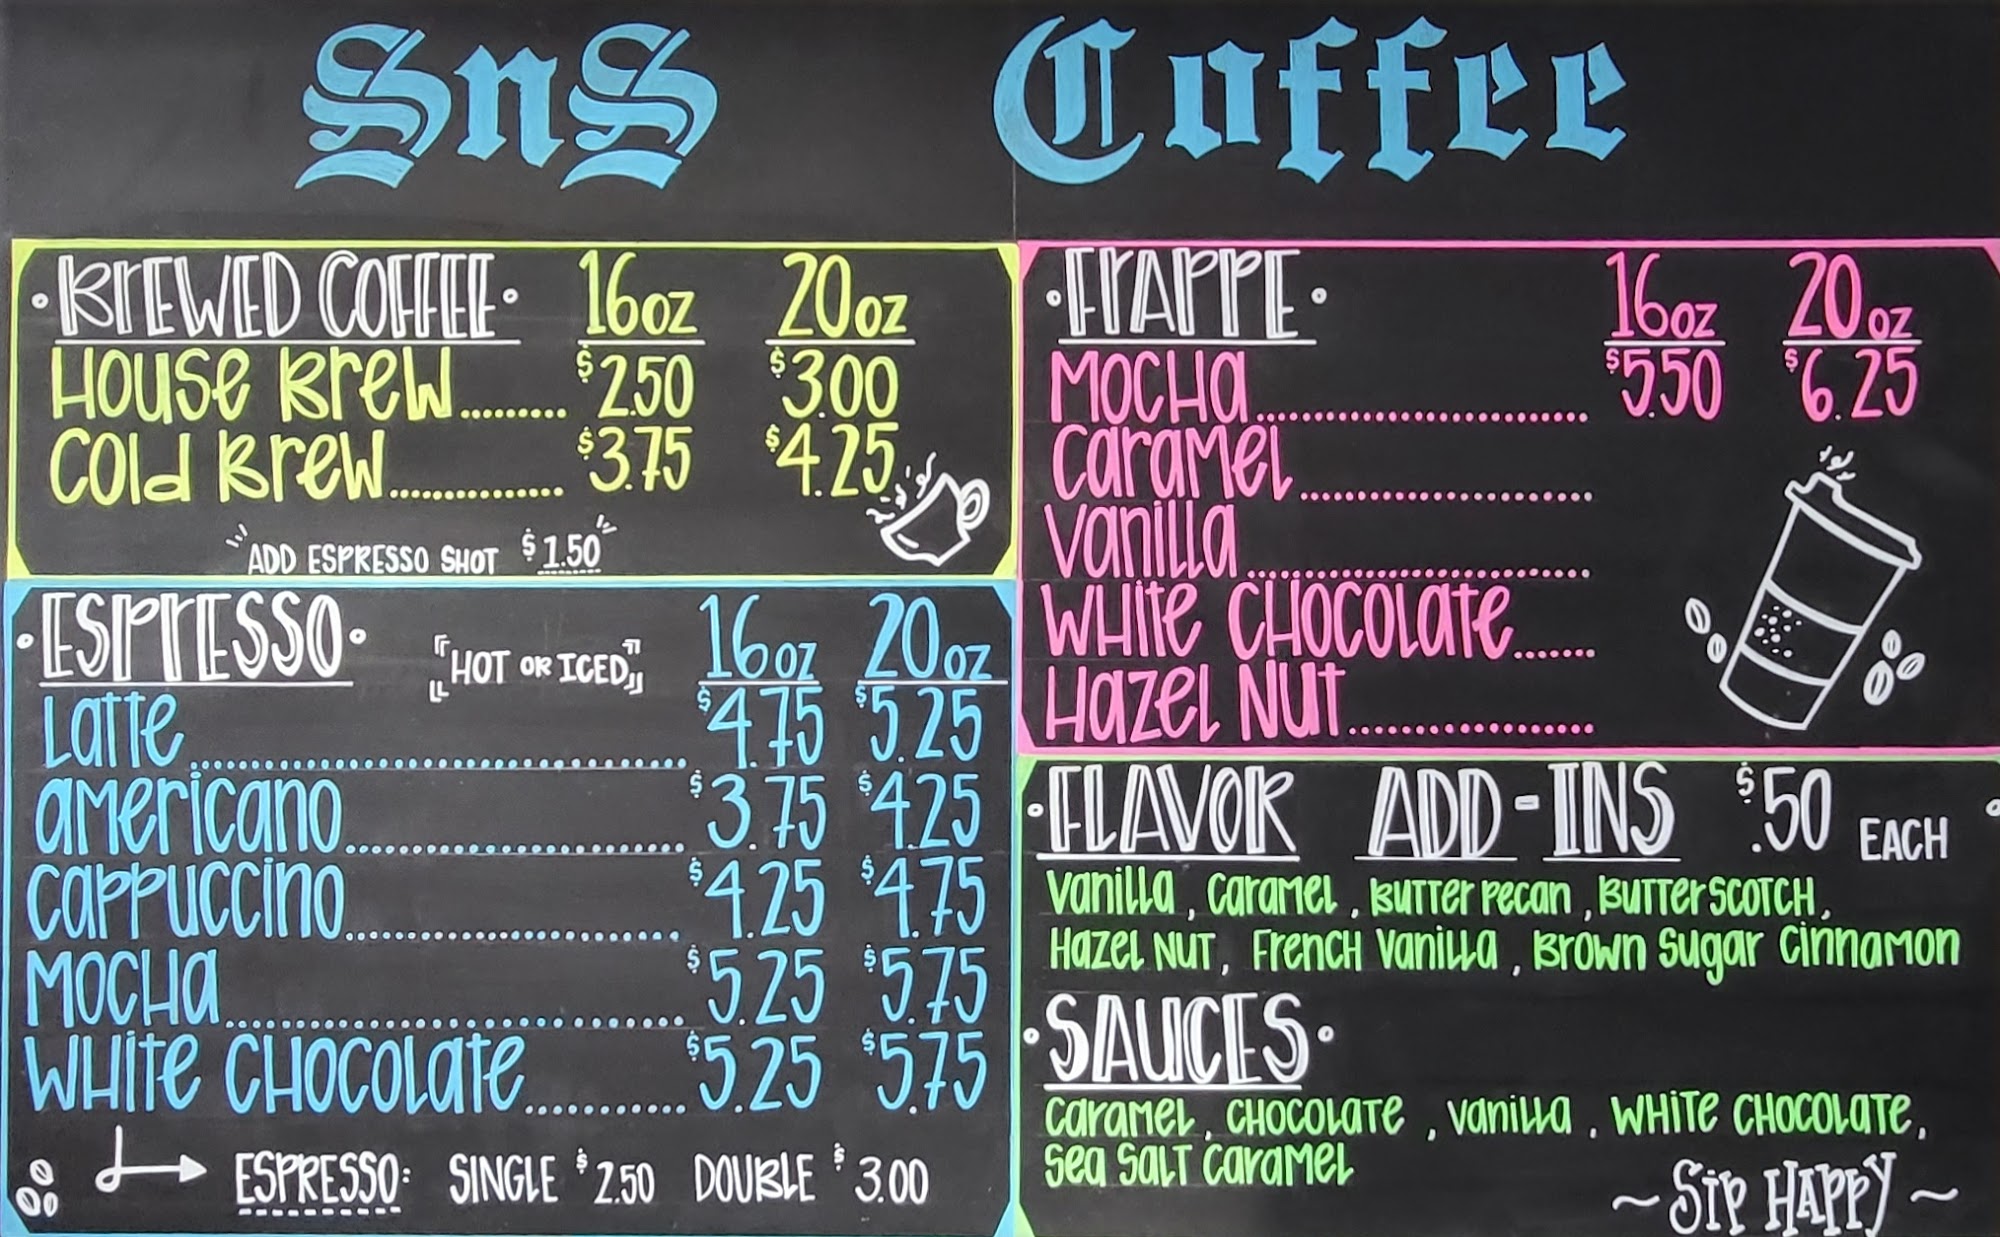 SnS Coffee
BREWED COFFEE 16oz 20oz
House Brew......... $2.50 $3.00
Cold Brew............. $3.75 $4.25
ADD ESPRESSO SHOT $1.50
ESPRESSO HOT OR ICED 16oz 20oz
Latte $4.75 $5.25
americano $3.75 $4.25
cappuccino $4.25 $4.75
Mocha $5.25 $5.75
White Chocolate $5.25 $5.75
ESPRESSO: SINGLE $2.50 DOUBLE $3.00
FRAPPE 16oz 20oz
Mocha $5.50 $6.25
Caramel
Vanilla
White Chocolate
Hazel Nut
FLAVOR ADD-INS $.50 EACH
Vanilla, Caramel, Butter Pecan, Butterscotch,
Hazel Nut, French Vanilla, Brown Sugar Cinnamon
SAUCES
Caramel, Chocolate, Vanilla, White Chocolate,
Sea Salt Caramel
~ Sip Happy ~